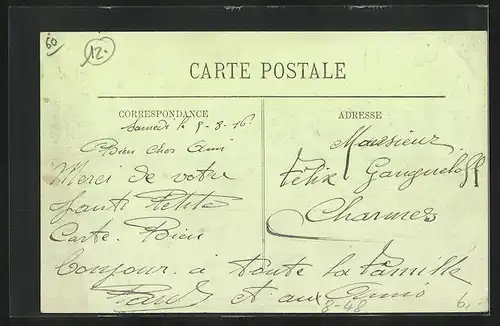 60
12-
CARTE POSTALE
CORRESPONDANCE
ADRESSE
Samedi le 5-8-16
Bien cher Ami
Merci de votre
Petite
Carte. Bien
bonjour à toute la famille
et aux Amis
Monsieur
Félix
Charmes
8-48
6.